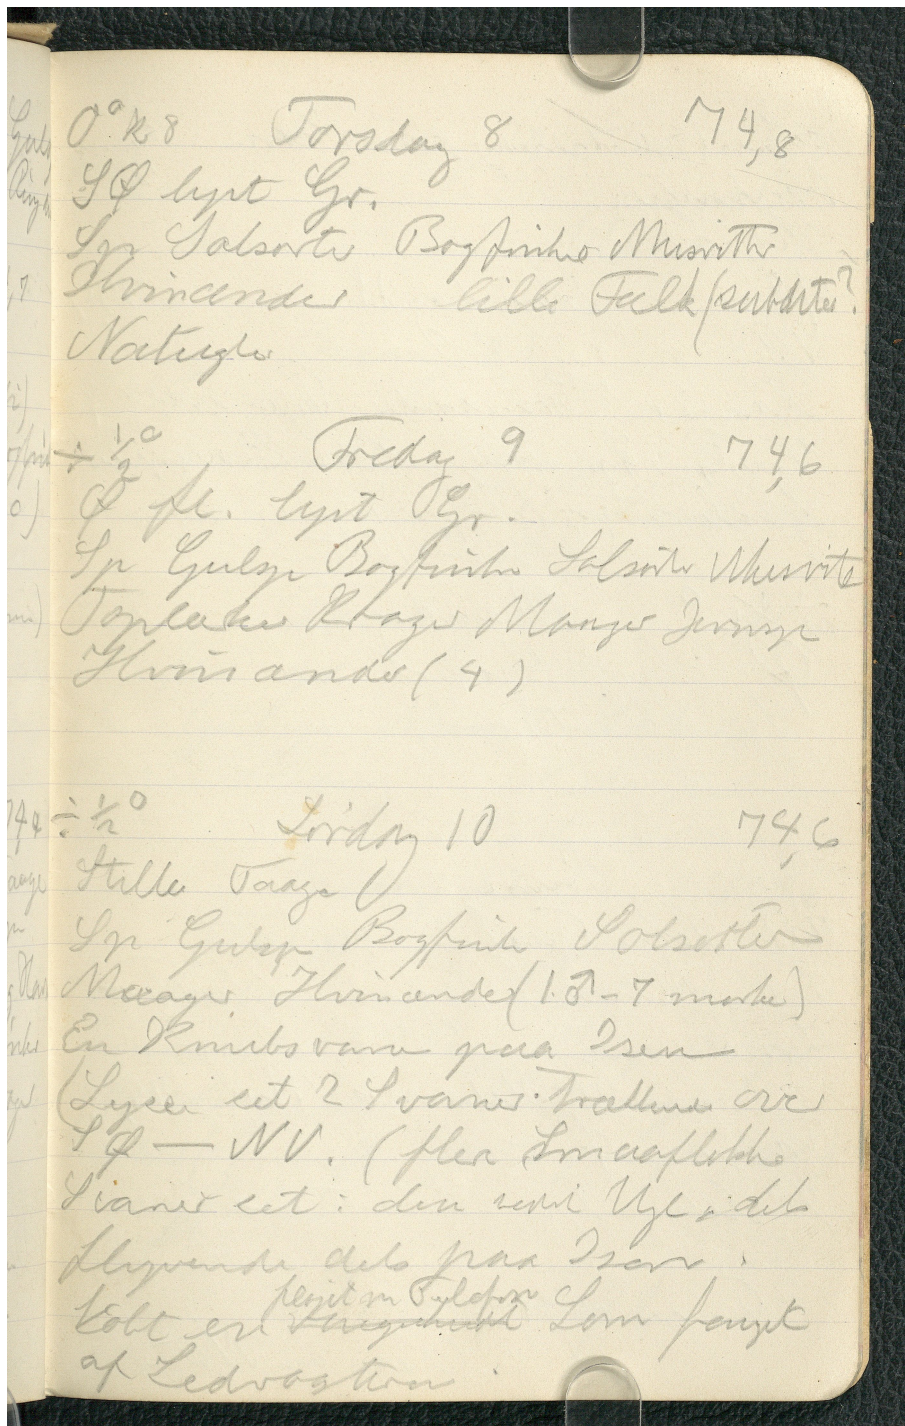 0° K 8 Torsdag 8 74,8
SØ lyst Gr.
Sp Solsorte Bogfinke Musvitte
Hvinænder lille Falk (subarter?
Natugle
÷ ½° Fredag 9 74,6
Ø fl. lyst Gr.
Sp Gulsp Bogfinke Solsorte Musvite
Toplærke Krager Maager Jernsp
Hvinænder (4)
÷ ½° Lørdag 10 74,6
Stille Taage
Sp Gulsp Bogfinke Solsorte
Maager Hvinænder (1 ♂ - 7 mørke)
En Knobsvane paa Isen
(Lyce set 2 Svaner trækkende over
SØ — NV. (flere Smaaflokke
Svaner set i den sidste Uge, dels
flyvende dels paa Isen.
Købt en Lom fanget
af Ledvogteren